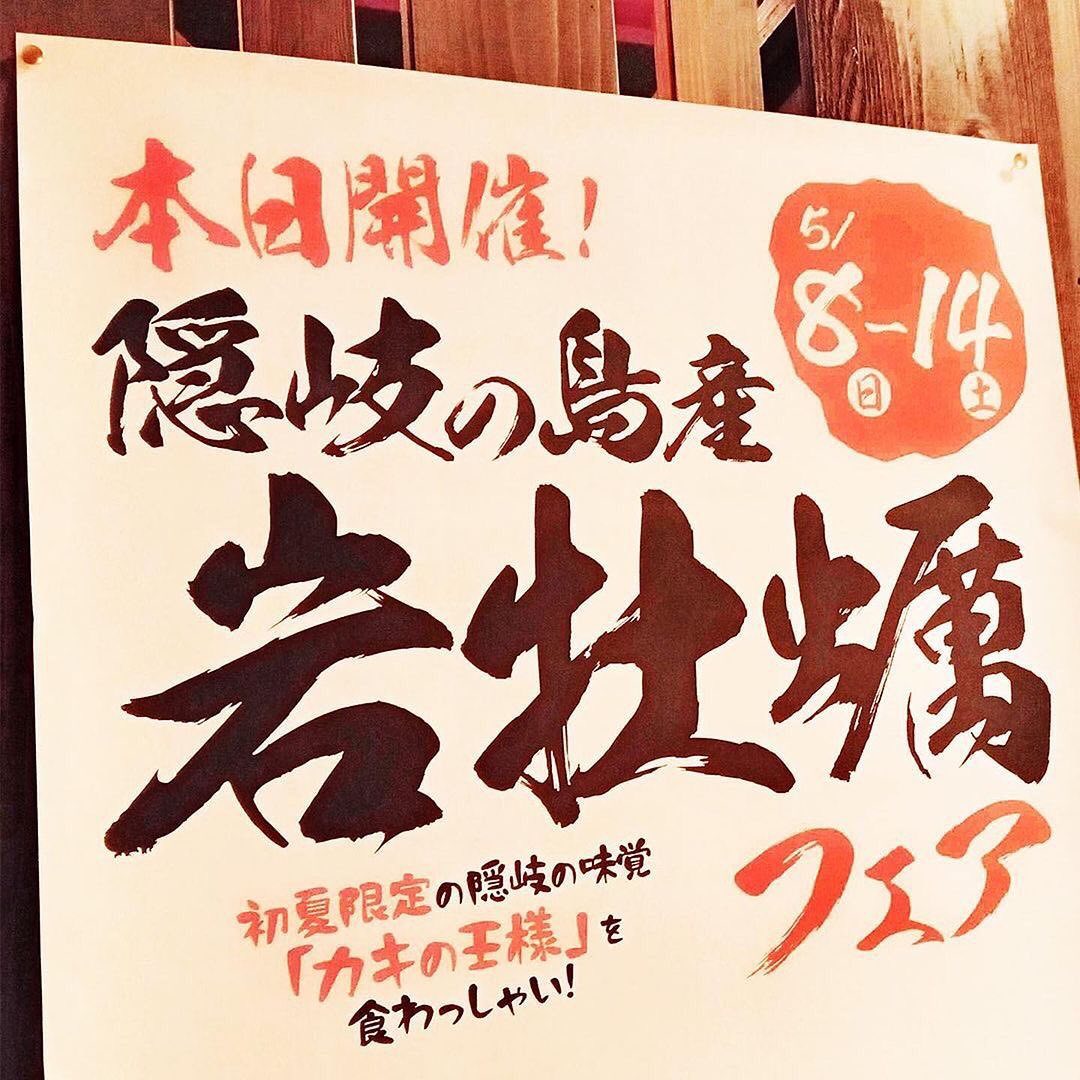 本日開催!
5/
8-14
日 土
隠岐の島産
岩牡蠣
フェア
初夏限定の隠岐の味覚
「カキの王様」を
食わっしゃい!